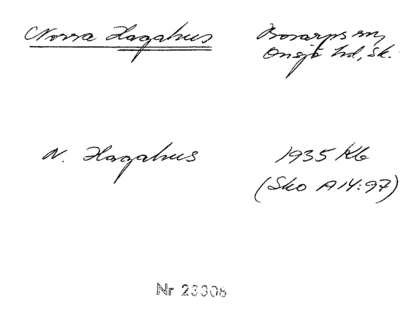 Norra Hagahus Bosarps sn,
Onsjö hd, Sk.
N. Hagahus 1935 Kb
(Sko A14:97)
Nr 23308